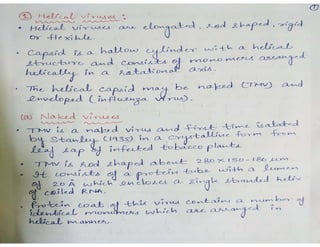 1
① Helical viruses :
• Helical viruses are elongated, rod shaped, rigid
or flexible.
• Capsid is a hallow cylinder with a helical
structure and consists of monomers arranged
helically in a rotational axis.
• The helical capsid may be naked (TMV) and
enveloped (influenza virus).
(a) Naked viruses
• TMV is a naked virus and first time isolated
by Stanley (1935) in a crystalline form from
leaf sap of infected tobacco plants.
• TMV is rod shaped about 280×150-180 µm.
• It consists of a protein tube with a lumen
of 20 Å which encloses a single stranded helix
of coiled RNA.
• Protein coat of this virus contains a number of
identical monomers which are arranged in
helical manner.